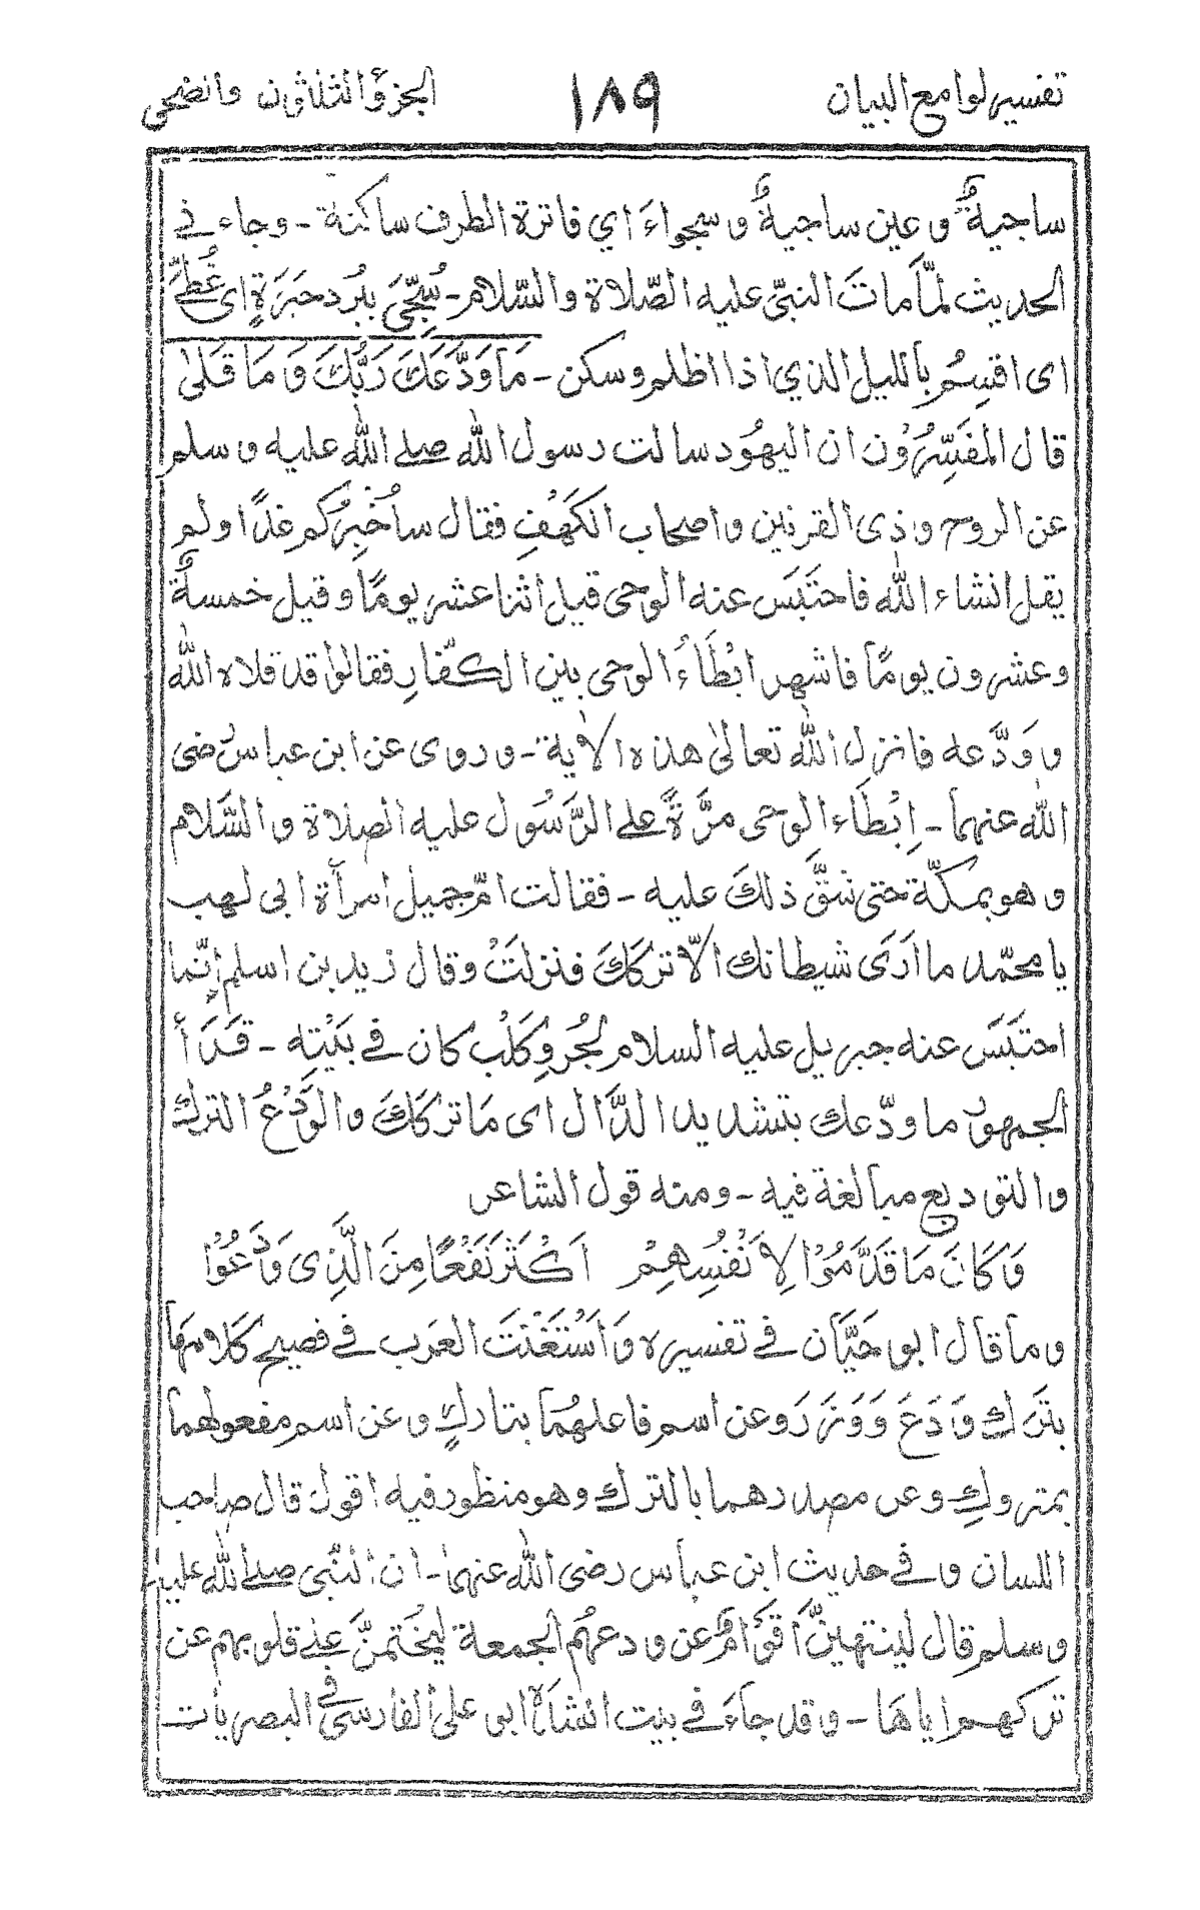 تفسير لوامع البيان ١٨٩ الجزؤ الثلاثون والضحى
ساجيةٌ وعين ساجيةٌ وسجواءَ اي فاترة الطرف ساكنة - وجاء في
الحديث لمّا ماتَ النبيّ عليه الصّلاة والسّلام - سُجّيَ ببُرد حبَرَةٍ اى غُطِّيَ
اى اقسِمُ بالليل الذي اذا اظلم وسكن - مَا وَدَّعَكَ رَبُّكَ وَمَا قَلىٰ
قال المفَسِّرُوْن ان اليهُود سالت رسول الله صلے الله عليه وسلم
عن الروح وذى القرنين واصحاب الكَهْفِ فقال سأُخْبِرُكم غدًا ولم
يقل انشاء الله فاحتَبَسَ عنه الوحى قيل اثنا عشر يومًا وقيل خمسةٌ
وعشرون يومًا فاشهر ابْطَاءُ الوحى بين الكفّارِ فقالوا قد قلاه الله
ووَدَّعه فانزل الله تعالىٰ هذه الاٰية - وروى عن ابن عباس رضى
الله عنهما - اِبْطَاء الوحى مرَّةً علے الرَّسُول عليه الصلاة والسَّلام
وهو بمكّة حتى شقَّ ذلكَ عليه - فقالت امّ جميل امرأة ابى لهب
يا محمّد ما ارَى شيطانك الاّ تركَكَ فنزلَتْ وقال زيد بن اسلم إنّما
احتَبَسَ عنه جبريل عليه السلام لجُروِ كَلْب كان في بَيْتِه - قَرَأَ
الجمهور ما ودّعك بتشديد الدَّال اى مَا تركَكَ والوَدْعُ الترك
والتوديع مبالغة فيه - ومنه قول الشاعر
وَكَانَ مَا قَدَّمُوْا لِاَنْفُسِهِمْ اَكْثَرَ نَفْعًا مِنَ الَّذِى وَدَعُوْا
وما قال ابو حَيَّان في تفسيره وَاسْتَغْنَت العَرب في فصيح كلامها
بتَرَك وَدَعَ وَوَذَرَ وعن اسم فاعلهُما بتاركٍ وعن اسم مفعولهما
بمتروكٍ وعن مصدرهما بالترك وهو منظور فيه اقول قال صاحب
اللسان وفي حديث ابن عباس رضى الله عنهما - ان النبى صلے الله عليه
وسلم قال لينتهينَّ اَقْوَامٌ عن ودعهُم الجمعة ليُختمنَّ علے قلوبهم عن
تركهم اياها - وقد جاءَ في بيت انشدَهٗ ابى على الفارسى فى البصريات